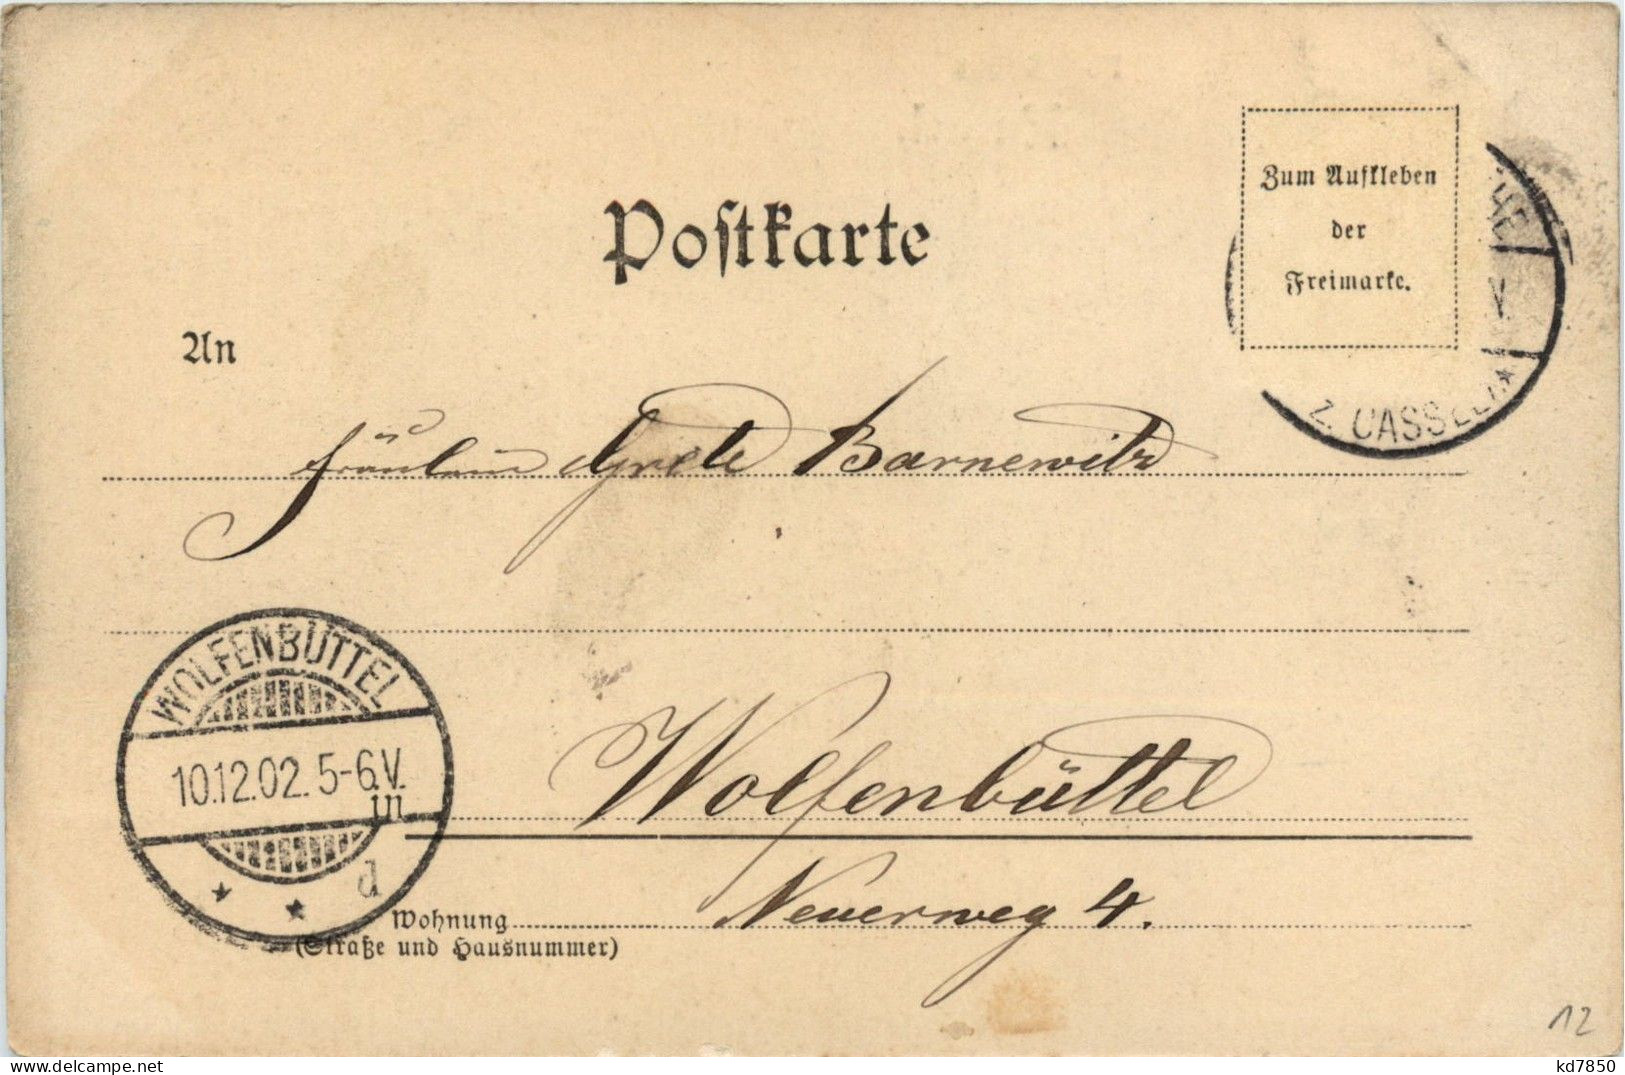 Postkarte
Zum Aufkleben
der
Freimarke.
Z. CASSEL
An
Fräulein Grete Barnewitz
WOLFENBÜTTEL
10.12.02. 5-6.V.
d
in Wolfenbüttel
Wohnung Neuerweg 4.
(Straße und Hausnummer)
12
kd7850